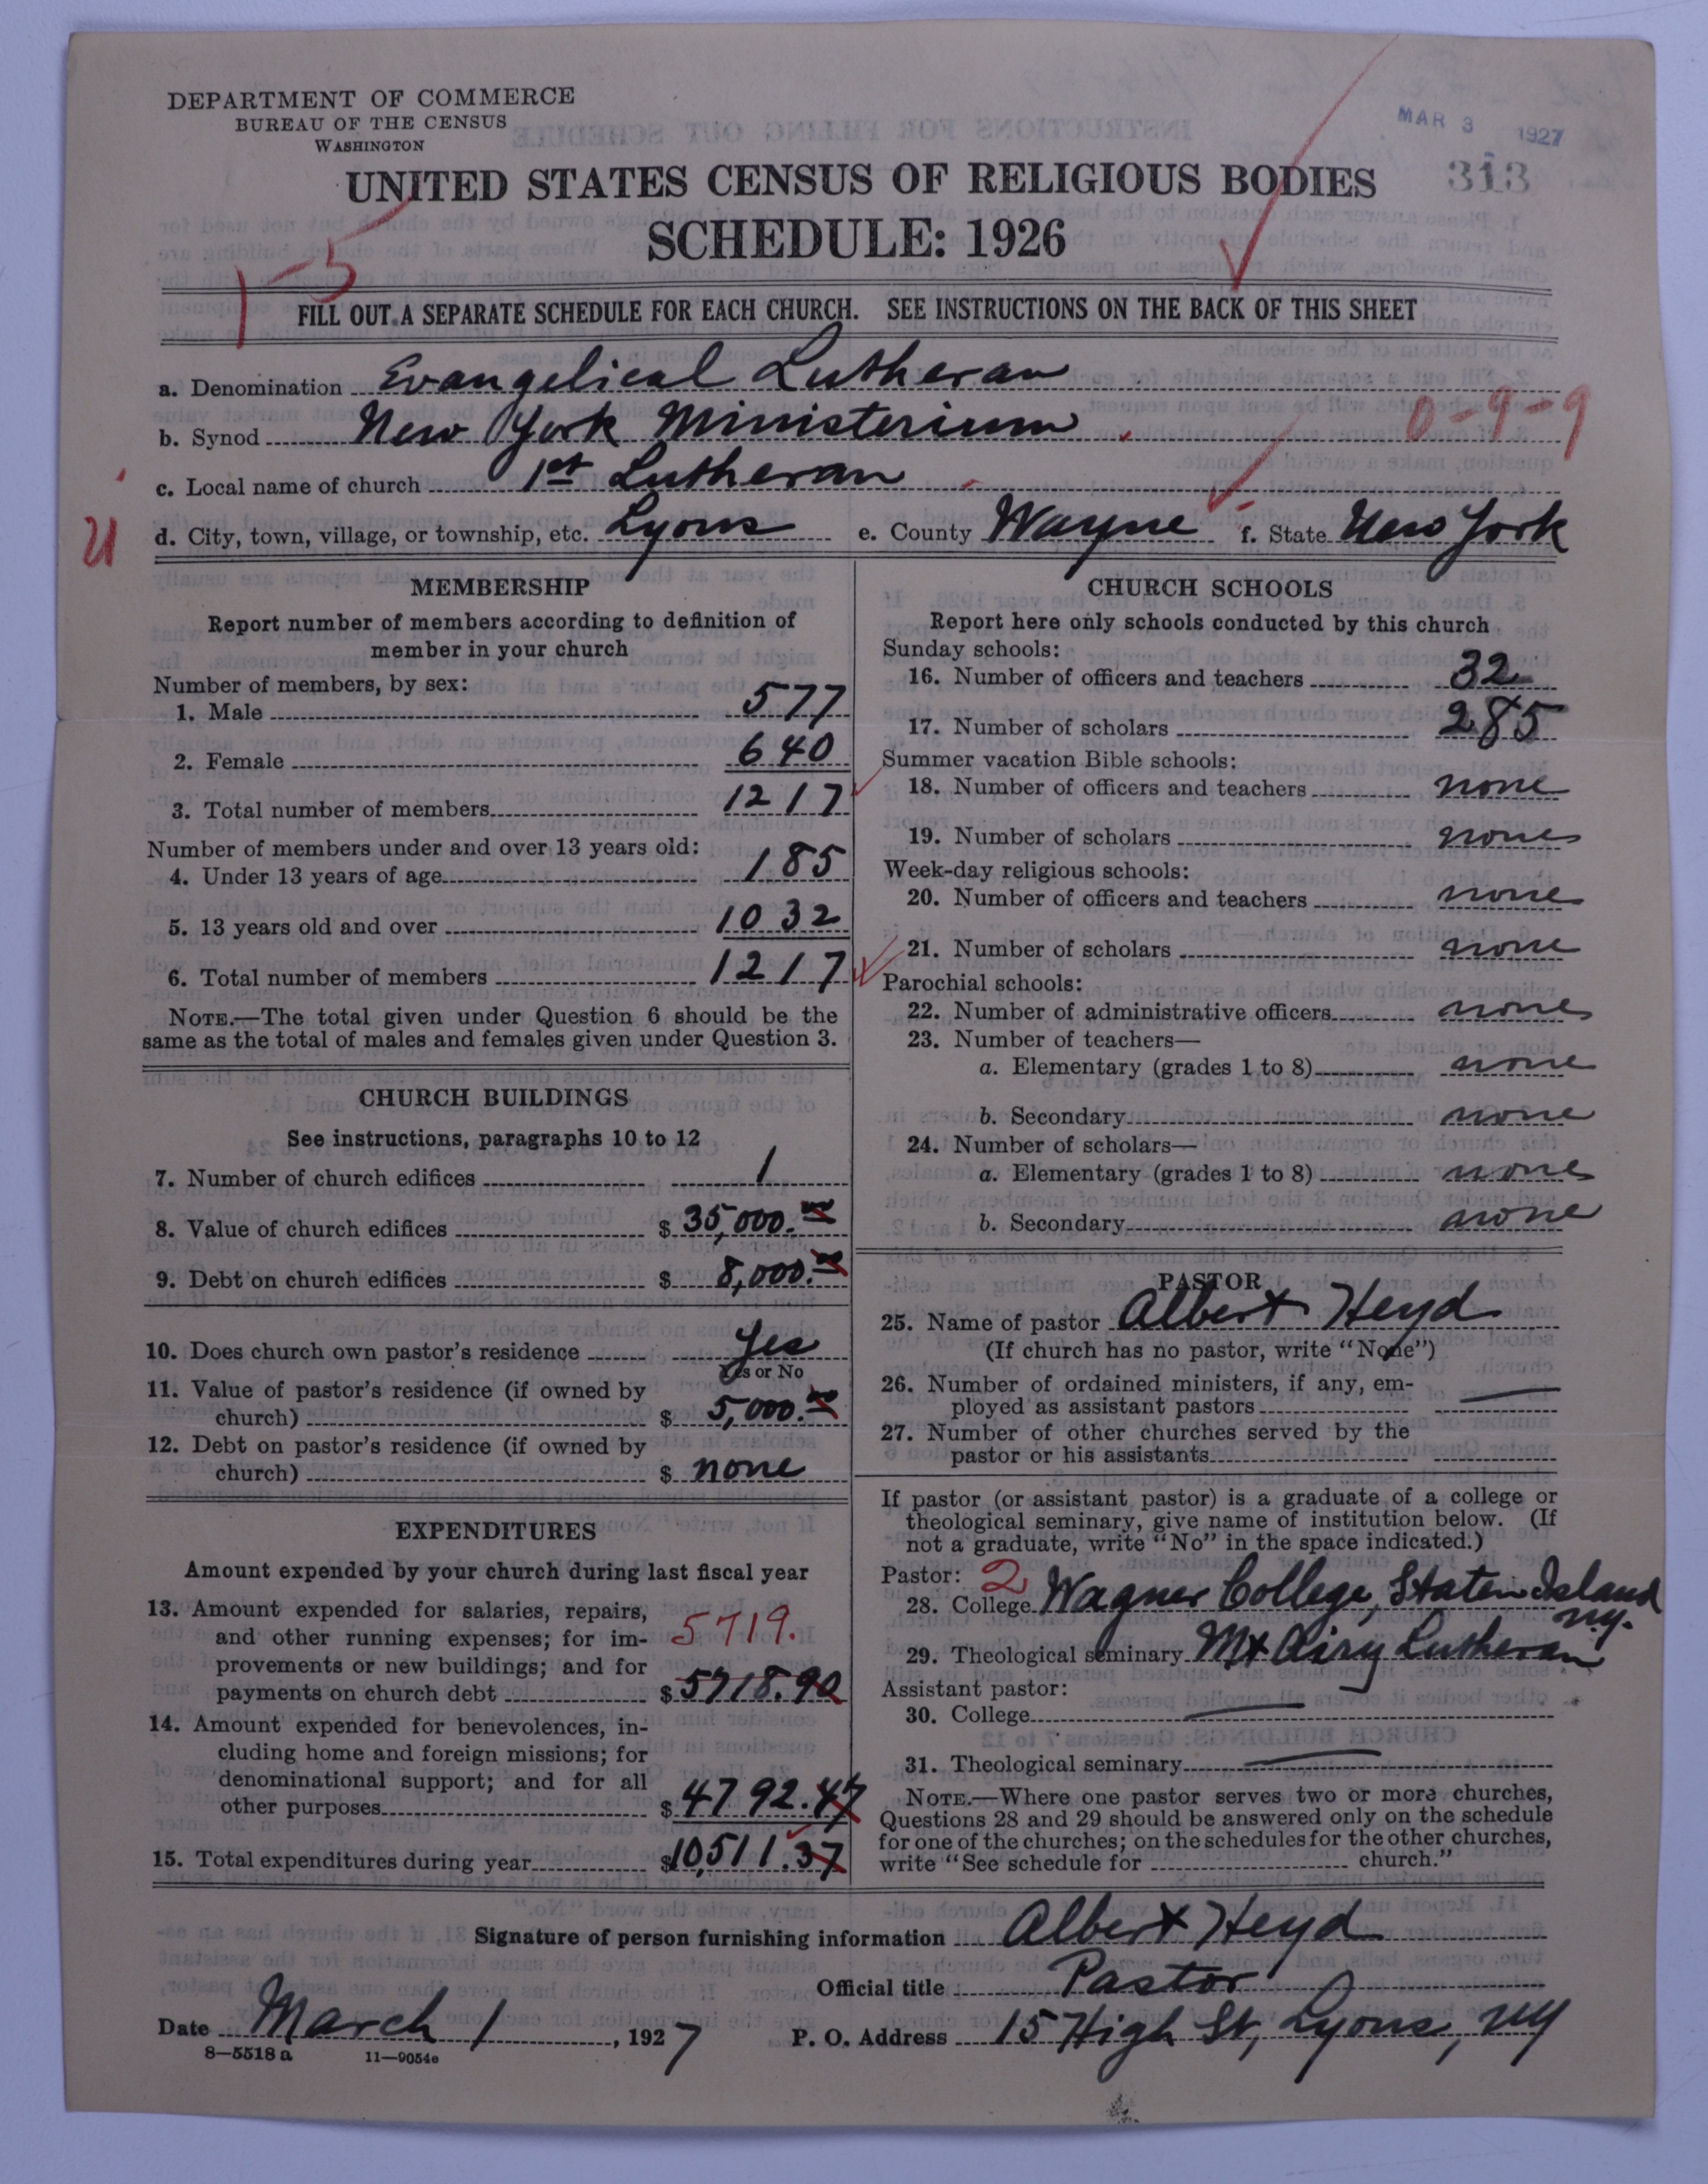 DEPARTMENT OF COMMERCE
BUREAU OF THE CENSUS
WASHINGTON
MAR 3 1927
313
UNITED STATES CENSUS OF RELIGIOUS BODIES
SCHEDULE: 1926
1-5
FILL OUT A SEPARATE SCHEDULE FOR EACH CHURCH. SEE INSTRUCTIONS ON THE BACK OF THIS SHEET
a. Denomination Evangelical Lutheran
b. Synod New York Ministerium 0-9-9
c. Local name of church 1st Lutheran
d. City, town, village, or township, etc. Lyons e. County Wayne f. State New York
MEMBERSHIP
Report number of members according to definition of
member in your church
Number of members, by sex:
1. Male 577
2. Female 640
3. Total number of members 1217
Number of members under and over 13 years old:
4. Under 13 years of age 185
5. 13 years old and over 1032
6. Total number of members 1217
NOTE.—The total given under Question 6 should be the
same as the total of males and females given under Question 3.
CHURCH BUILDINGS
See instructions, paragraphs 10 to 12
7. Number of church edifices 1
8. Value of church edifices $ 35,000.00
9. Debt on church edifices $ 8,000.00
10. Does church own pastor's residence Yes
Yes or No
11. Value of pastor's residence (if owned by
church) $ 5,000.00
12. Debt on pastor's residence (if owned by
church) $ none
EXPENDITURES
Amount expended by your church during last fiscal year
13. Amount expended for salaries, repairs,
and other running expenses; for im- 5719.
provements or new buildings; and for
payments on church debt $ 5718.90
14. Amount expended for benevolences, in-
cluding home and foreign missions; for
denominational support; and for all
other purposes $ 4792.47
15. Total expenditures during year $ 10,511.37
CHURCH SCHOOLS
Report here only schools conducted by this church
Sunday schools:
16. Number of officers and teachers 32
17. Number of scholars 285
Summer vacation Bible schools:
18. Number of officers and teachers none
19. Number of scholars none
Week-day religious schools:
20. Number of officers and teachers none
21. Number of scholars none
Parochial schools:
22. Number of administrative officers none
23. Number of teachers—
a. Elementary (grades 1 to 8) none
b. Secondary none
24. Number of scholars—
a. Elementary (grades 1 to 8) none
b. Secondary none
PASTOR
25. Name of pastor Albert Heyd
(If church has no pastor, write "None")
26. Number of ordained ministers, if any, em-
ployed as assistant pastors
27. Number of other churches served by the
pastor or his assistants
If pastor (or assistant pastor) is a graduate of a college or
theological seminary, give name of institution below. (If
not a graduate, write "No" in the space indicated.)
Pastor: 2
28. College Wagner College, Staten Island
N.Y.
29. Theological seminary Mt Airy Lutheran
Assistant pastor:
30. College
31. Theological seminary
NOTE.—Where one pastor serves two or more churches,
Questions 28 and 29 should be answered only on the schedule
for one of the churches; on the schedules for the other churches,
write "See schedule for church."
Signature of person furnishing information Albert Heyd
Official title Pastor
Date March 1, 1927 P. O. Address 15 High St, Lyons, NY
8—5518 a 11—9054e